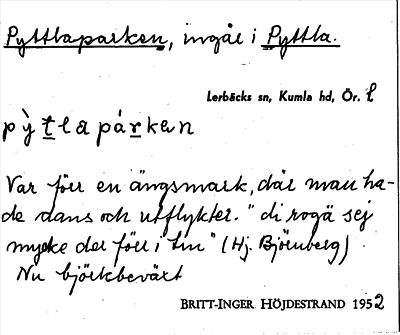 Pyttlaparken, ingår i Pyttla.
Lerbäcks sn, Kumla hd, Ör. l
pỳtlapárken
Var förr en ängsmark, där man ha-
de dans och utflykter. "di rogä sej
mycke där förr i tin" (Hj. Björnberg)
Nu björkbeväxt
BRITT-INGER HÖJDESTRAND 1952